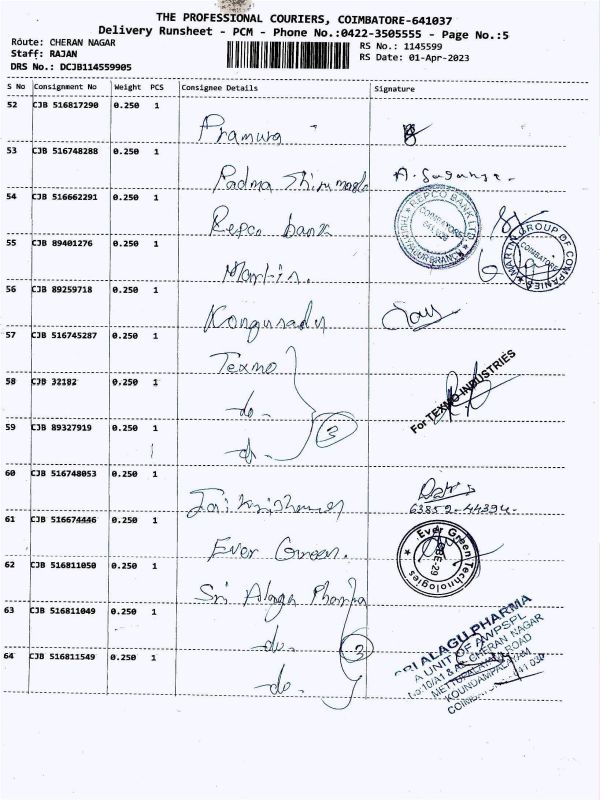 THE PROFESSIONAL COURIERS, COIMBATORE-641037
Delivery Runsheet - PCM - Phone No.:0422-3505555 - Page No.:5
Route: CHERAN NAGAR
Staff: RAJAN
DRS No.: DCJB114559905
RS No.: 1145599
RS Date: 01-Apr-2023
S No Consignment No Weight PCS Consignee Details Signature
52 CJB 516817290 0.250 1
Pramura
53 CJB 516748288 0.250 1
Padma
54 CJB 516662291 0.250 1
Repco bank
REPCO BANK LTD
COIMBATORE
55 CJB 89401276 0.250 1
Martin.
MARTIN GROUP OF COMPANIES
COIMBATORE
56 CJB 89259718 0.250 1
Kongunadu
57 CJB 516745287 0.250 1
Texmo
58 CJB 32182 0.250 1
-do-
For TEXMO INDUSTRIES
59 CJB 89327919 0.250 1
-do-
3
60 CJB 516748053 0.250 1
63852-44394-
61 CJB 516674446 0.250 1
Ever Green.
Ever Green Technologies
CBE-29
62 CJB 516811050 0.250 1
Sri Alagu Pharma
63 CJB 516811049 0.250 1
-do-
3
64 CJB 516811549 0.250 1
-do-
SRI ALAGU PHARMA
A UNIT OF AWPSPL
CHERAN NAGAR
ROAD